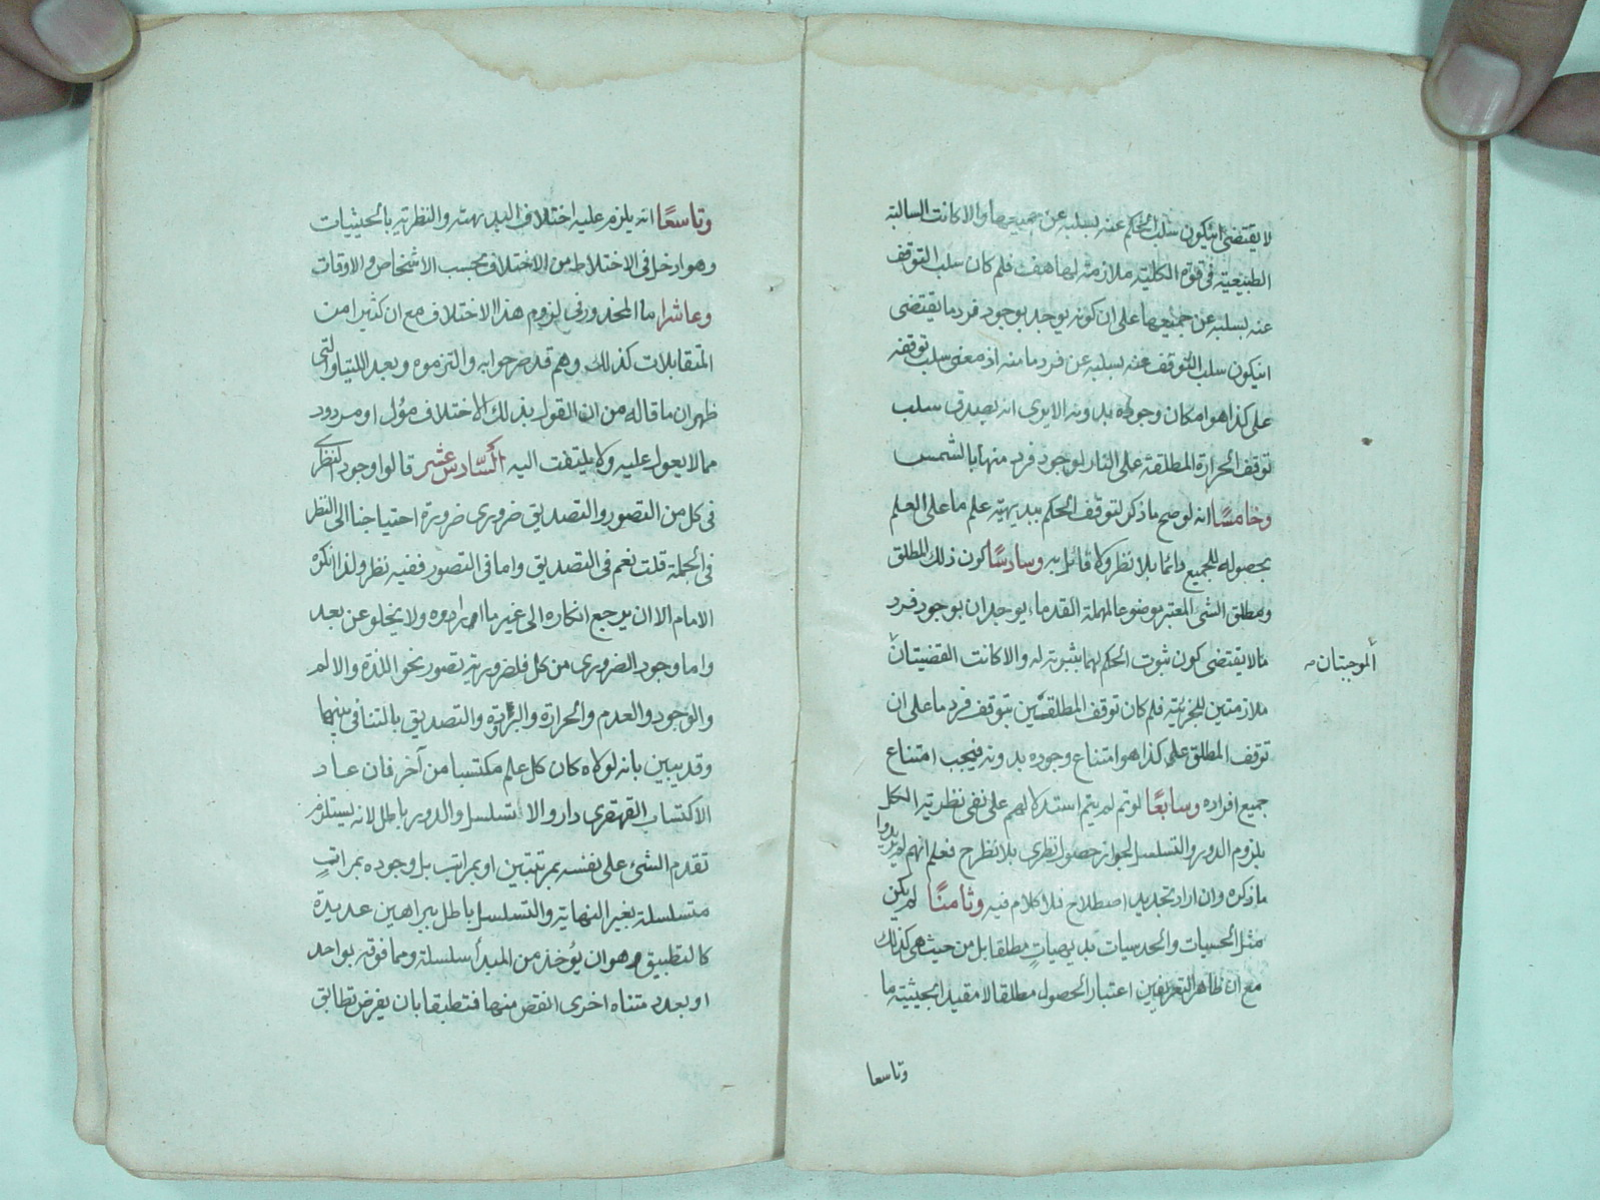 لا يقتضى انيكون سلب الحكم عنه بسلبه عن جميعها والا كانت السالبة
الطبيعية فى قوة الكلية ملازمة لها هف فلم كان سلب التوقف
عنه بسلبه عن جميعها على ان كونه يوجد بوجود فرد ما يقتضى
انيكون سلب التوقف عنه بسلبه عن فرد ما منه اذ معنى سلب توقفه
على كذا هو امكان وجوده بدونه الا يرى انه يصدق سلب
توقف الحرارة المطلقة على النار لوجود فرد منها بالشمس
وخامسًا انه لو صح ما ذكر لتوقف الحكم ببديهية علم ما على العلم
بحصوله للجميع دائما بلا نظر ولا قائل به وسادسًا كون ذلك المطلق
ومطلق الشئ المعتبر موضوعا لمهملة القدماء يوجدان بوجود فرد
ما لا يقتضى كون ثبوت الحكم لهما بثبوته له والا كانت القضيتان
الموجبتان صح
ملازمتين للجزئية فلم كان توقف المطلقين بتوقف فرد ما على ان
توقف المطلق على كذا هو امتناع وجوده بدونه فيجب امتناع
جميع افراده وسابعًا لو تم لم يتم استدلالهم على نفى نظرية الكل
بلزوم الدور والتسلسل لجواز حصول نظرى بلا نظر ح فعلم انهم لم يريدوا
ما ذكره وان اراد تجديد اصطلاح فلا كلام فيه وثامنًا لم يكن
مثل الحسيات والحدسيات بديهيات مطلقا بل من حيث هى كذلك
مع ان ظاهر التعريفين اعتبار الحصول مطلقا لا مقيد الحيثية ما
وتاسعا
وتاسعًا انه يلزم عليه اختلاف البديهية والنظرية بالحيثيات
وهو ادخل فى الاختلاط من الاختلاف بحسب الاشخاص والاوقات
وعاشرا ما المحذور فى لزوم هذا الاختلاف مع ان كثيرا من
المتقابلات كذلك وهم قد صرحوا به والتزموه وبعد اللتيا والتى
ظهر ان ما قاله من ان القول بذلك الاختلاف مؤل او مردود
مما لا يعول عليه ولا يلتفت اليه السادس عشر قالوا وجود النظرى
فى كل من التصور والتصديق ضرورى ضرورة احتياجنا الى النظر
فى الجملة قلت نعم فى التصديق واما فى التصور ففيه نظر ولذا انكره
الامام الا ان يرجع انكاره الى غير ما ارادوه ولا يخلو عن بعد
واما وجود الضرورى من كل فلضرورية تصور نحو اللذة والالم
والوجود والعدم والحرارة والبرودة والتصديق بالتنافى بينهما
وقد يبين بانه لولاه كان كل علم مكتسبا من آخر فان عاد
الاكتساب القهقرى دار والا تسلسل والدور باطل لانه يستلزم
تقدم الشئ على نفسه بمرتبتين او بمراتب بل وجوده بمراتب
متسلسلة بغير النهاية والتسلسل باطل ببراهين عديدة
كالتطبيق وهو ان يؤخذ من المبدأ سلسلة ومما فوقه بواحد
او بعدد متناه اخرى انقص منها فتطبقا بان يفرض تطابق